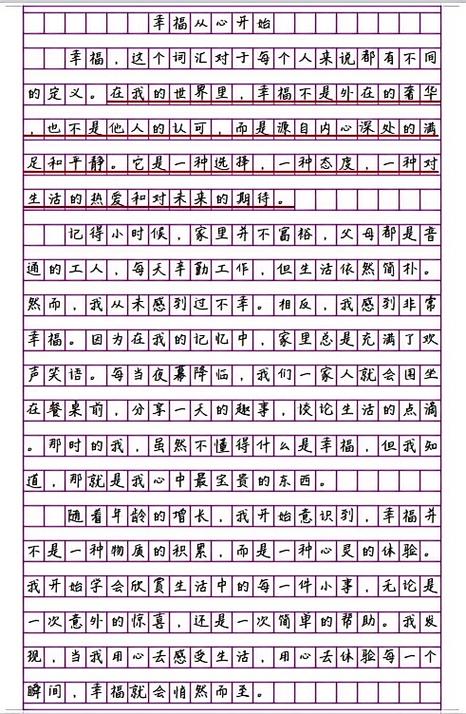 幸福从心开始
幸福，这个词汇对于每个人来说都有不同
的定义。在我的世界里，幸福不是外在的奢华
，也不是他人的认可，而是源自内心深处的满
足和平静。它是一种选择，一种态度，一种对
生活的热爱和对未来的期待。
记得小时候，家里并不富裕，父母都是普
通的工人，每天辛勤工作，但生活依然简朴。
然而，我从未感到过不幸。相反，我感到非常
幸福。因为在我的记忆中，家里总是充满了欢
声笑语。每当夜幕降临，我们一家人就会围坐
在餐桌前，分享一天的趣事，谈论生活的点滴
。那时的我，虽然不懂得什么是幸福，但我知
道，那就是我心中最宝贵的东西。
随着年龄的增长，我开始意识到，幸福并
不是一种物质的积累，而是一种心灵的体验。
我开始学会欣赏生活中的每一件小事，无论是
一次意外的惊喜，还是一次简单的帮助。我发
现，当我用心去感受生活，用心去体验每一个
瞬间，幸福就会悄然而至。